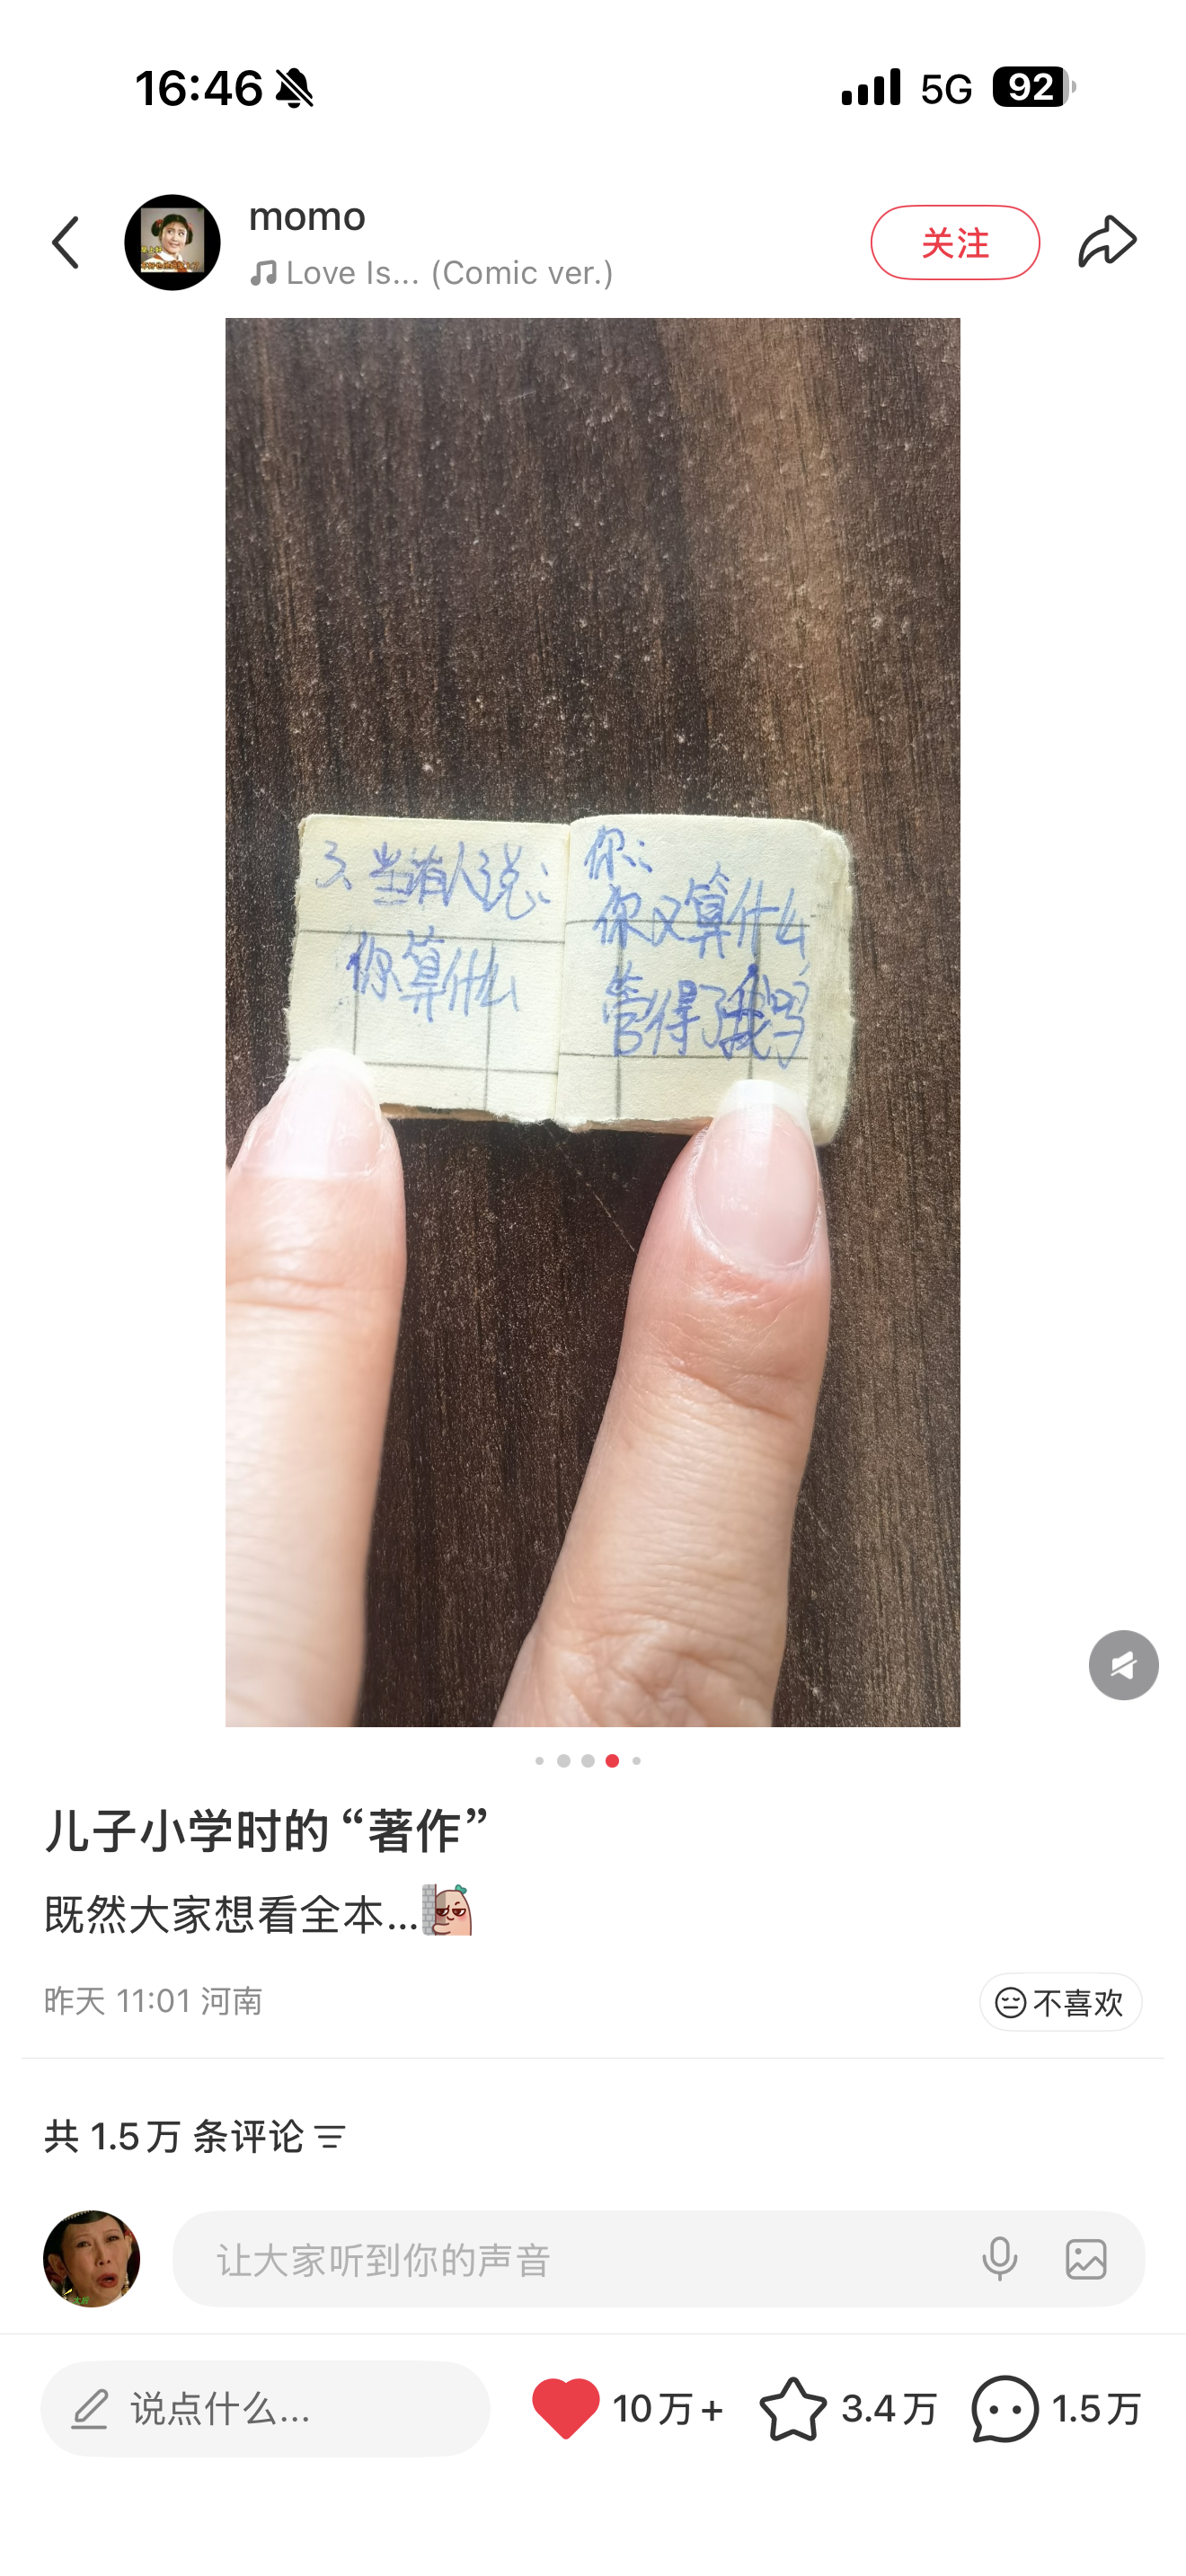 16:46
5G 92
momo
Love Is... (Comic ver.)
关注
3、当有人说：
你算什么
你：
你又算什么
管得了我吗
儿子小学时的 “著作”
既然大家想看全本...
昨天 11:01 河南
不喜欢
共 1.5万 条评论
让大家听到你的声音
说点什么...
10万+
3.4万
1.5万